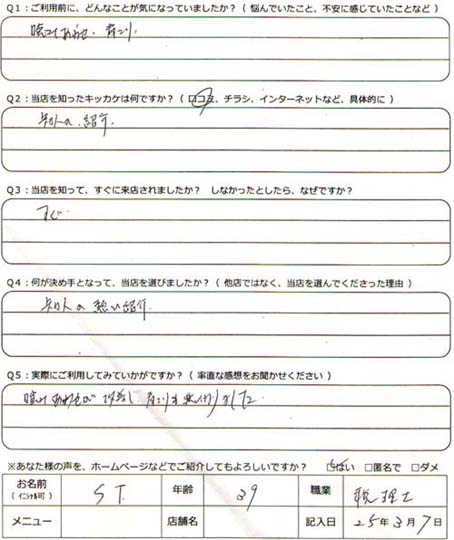 Q1：ご利用前に、どんなことが気になっていましたか？（ 悩んでいたこと、不安に感じていたことなど ）
噛み合わせ、肩こり
Q2：当店を知ったキッカケは何ですか？（ 口コミ、チラシ、インターネットなど、具体的に ）
知人の紹介
Q3：当店を知って、すぐに来店されましたか？ しなかったとしたら、なぜですか？
すぐ
Q4：何が決め手となって、当店を選びましたか？（ 他店ではなく、当店を選んでくださった理由 ）
知人の強い紹介
Q5：実際にご利用してみていかがですか？（ 率直な感想をお聞かせください ）
噛み あわせが 改善し 肩こりも
※あなた様の声を、ホームページなどでご紹介してもよろしいですか？ ☑はい □匿名で □ダメ
お名前 （イニシャル可） S T. 年齢 39 職業 税理士
メニュー 店舗名 記入日 25年3月7日